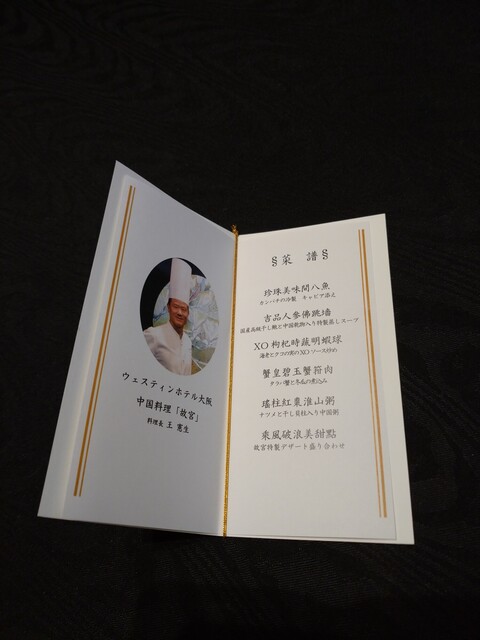 ウェスティンホテル大阪
中国料理「故宮」
料理長 王 憲生
§ 菜 譜 §
珍珠美味間八魚
カンパチの冷製 キャビア添え
吉品人參佛跳墻
国産高級干し鮑と中国乾物入り特製蒸しスープ
XO枸杞時蔬明蝦球
海老とクコの実のXOソース炒め
蟹皇碧玉蟹箝肉
タラバ蟹と冬瓜の煮込み
瑤柱紅棗淮山粥
ナツメと干し貝柱入り中国粥
乘風破浪美甜點
故宮特製デザート盛り合わせ